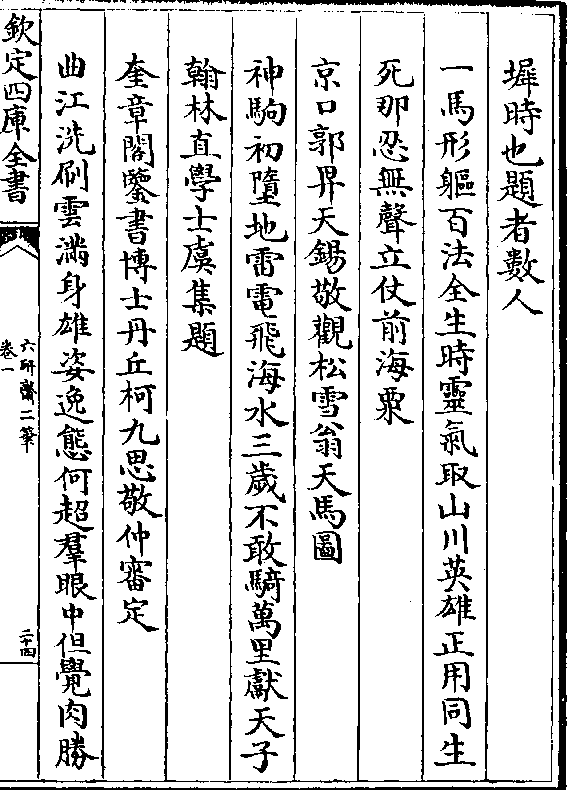 墀時也題者數人
一馬形軀百法全生時靈氣取山川英雄正用同生
死那忍無聲立仗前海粟
京口郭昇天錫敬觀松雪翁天馬圖
神駒初墮地雷電飛海水三歲不敢騎萬里獻天子
翰林直學士虞集題
奎章閣鑒書博士丹丘柯九思敬仲審定
曲江洗刷雲滿身雄姿逸態何超羣眼中但覺肉勝
欽定四庫全書
六研齋二筆
卷一
二十四